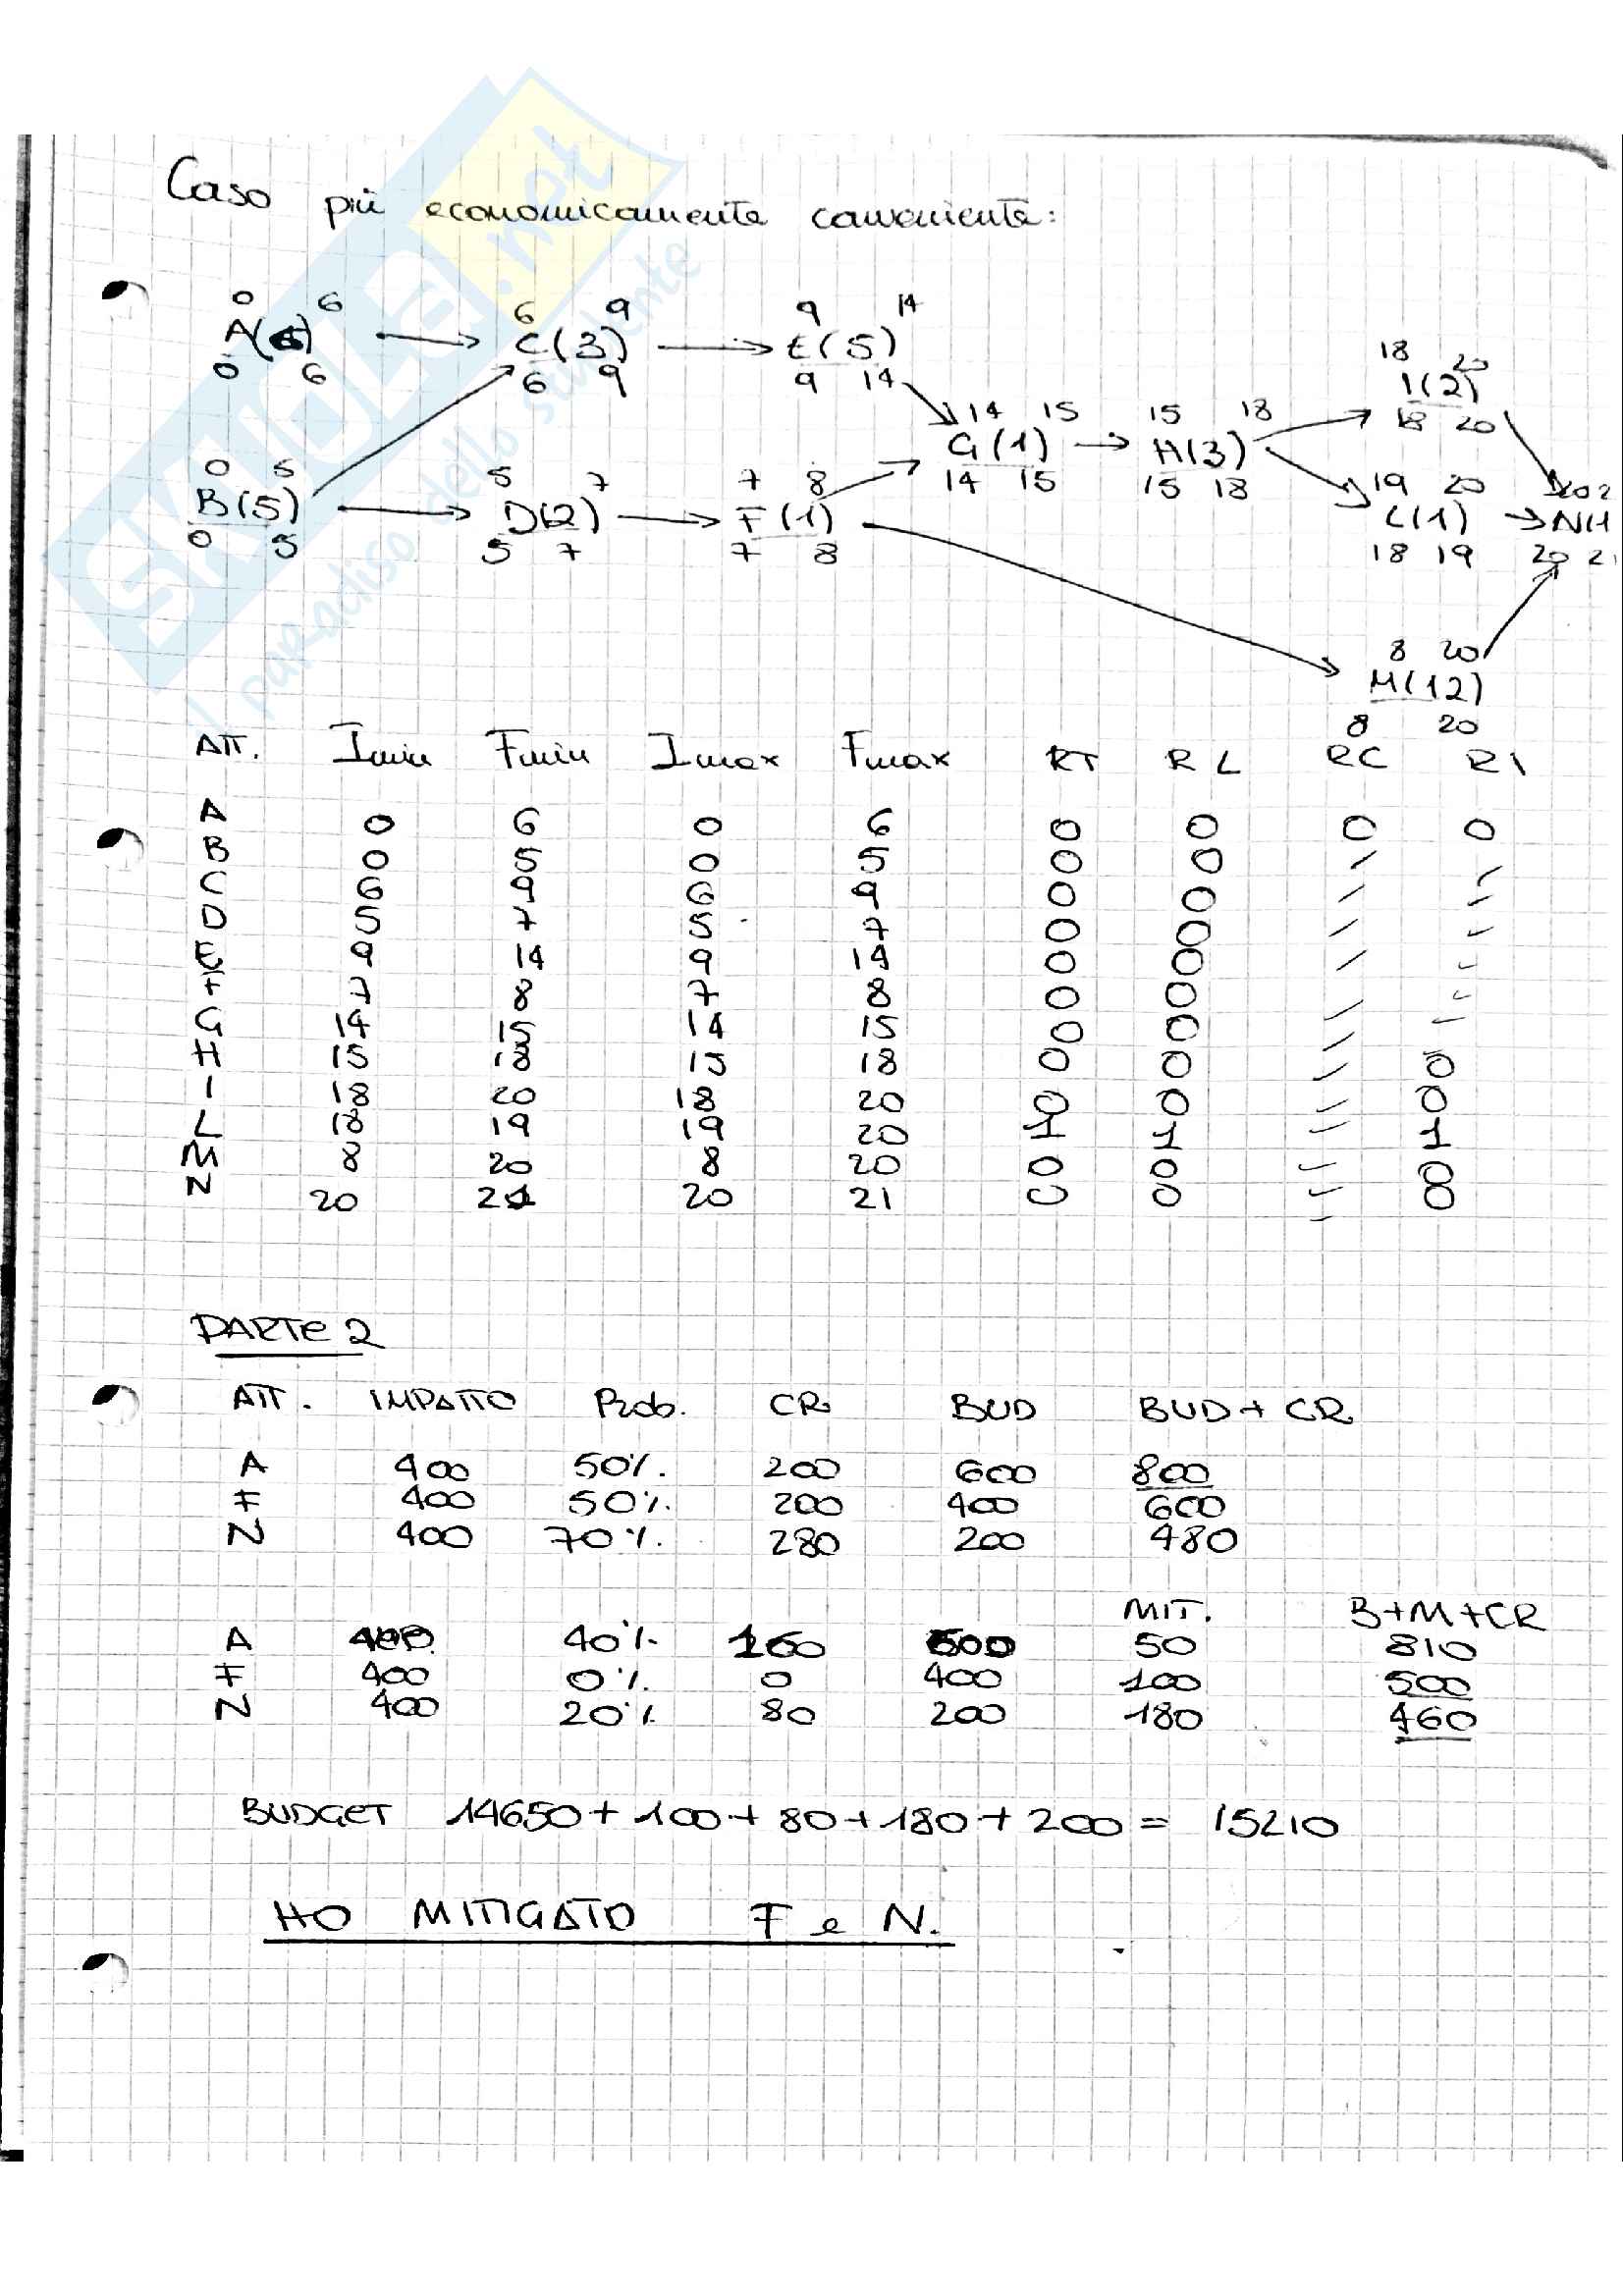 Caso più economicamente conveniente:
SKUOLA.net
il paradiso dello studente
0 6 6 9 9 14
A(6) C(3) E(5)
0 6 6 9 9 14
18 20
I(2)
18 20
14 15 15 18
G(1) H(3)
14 15 15 18
0 5 5 7 7 8 19 20 20 2
B(5) D(2) F(1) L(1) N(1
0 5 5 7 7 8 18 19 20 21
8 20
M(12)
8 20
ATT. Imin Fmin Imax Fmax RT RL RC RI
A 0 6 0 6 0 0 0 0
B 0 5 0 5 0 0
C 6 9 6 9 0 0
D 5 7 5 7 0 0
E 9 14 9 14 0 0
F 7 8 7 8 0 0
G 14 15 14 15 0 0
H 15 18 15 18 0 0 0
I 18 20 18 20 0 0 0
L 18 19 19 20 1 1 1
M 8 20 8 20 0 0 0
N 20 21 20 21 0 0 0
PARTE 2
ATT. IMPATTO Prob. CR BUD BUD + CR
A 400 50% 200 600 800
F 400 50% 200 400 600
N 400 70% 280 200 480
MIT. B+M+CR
A 400 40% 160 600 50 810
F 400 0% 0 400 100 500
N 400 20% 80 200 180 460
BUDGET 14650 + 100 + 80 + 180 + 200 = 15210
HO MITIGATO F e N.